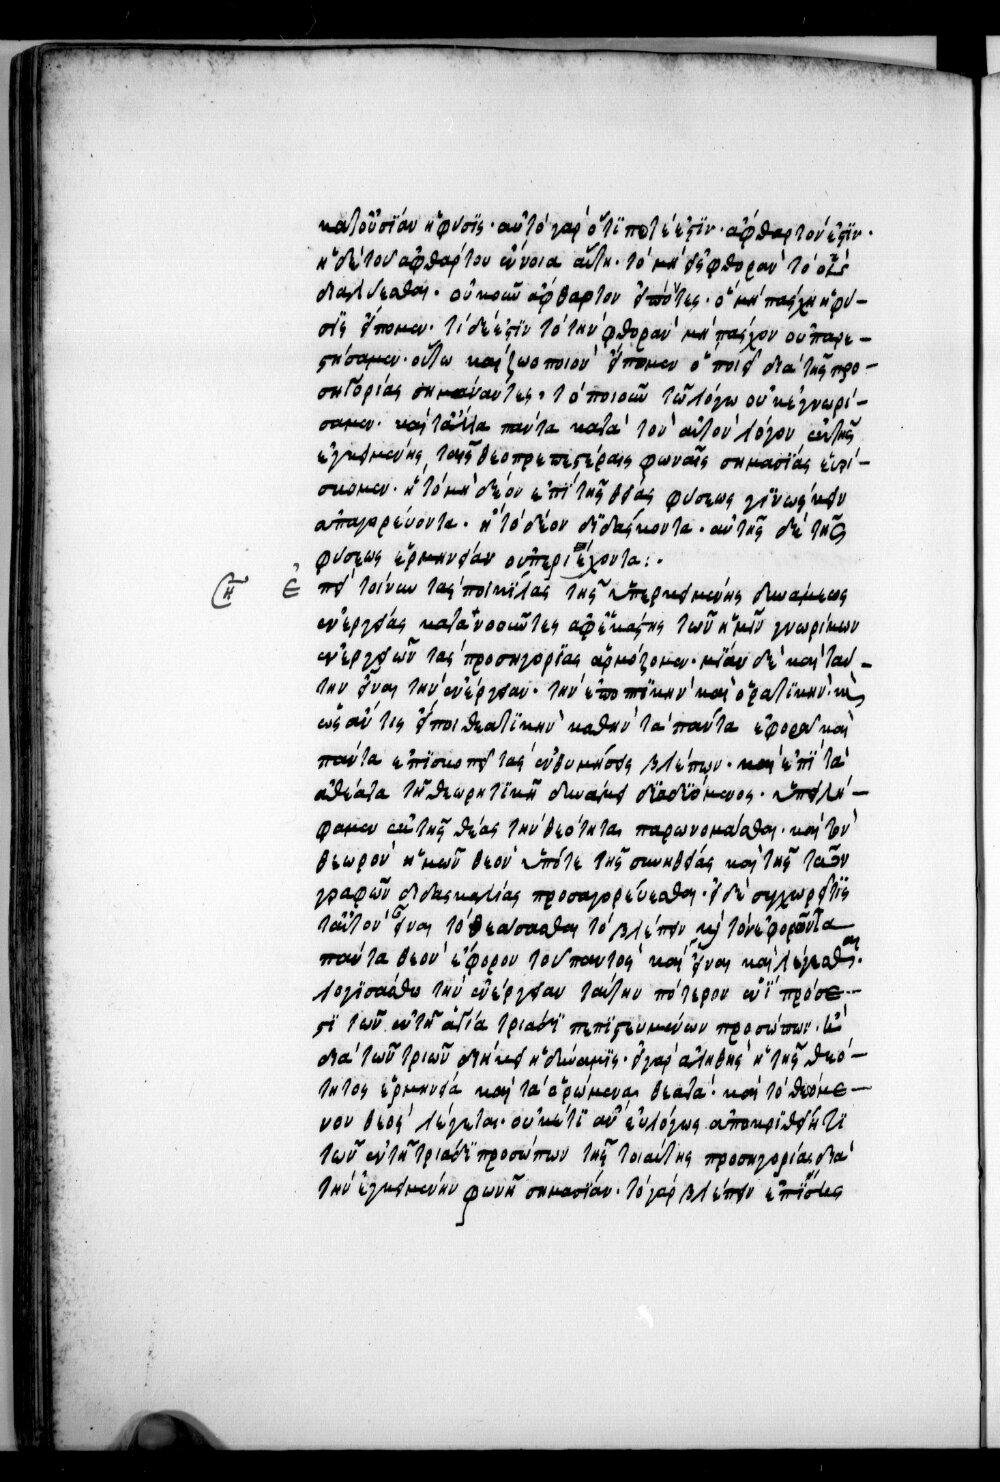 κατ οὐσίαν ἡ φύσις· αὐτὸ γὰρ ὅ τί ποτέ ἐστιν· ἄφθαρτόν ἐστιν·
ἡ δὲ τοῦ ἀφθάρτου ἔννοια αὕτη· τὸ μὴ εἰς φθορὰν τὸ ὂν
διαλύεσθαι· οὐκοῦν ἄφθαρτον εἰπόντες· ὃ μὴ πάσχει ἡ φύ-
σις εἴπομεν· τί δέ ἐστιν τὸ τὴν φθορὰν μὴ πάσχον οὐ παρε-
στήσαμεν· οὕτω καὶ ζωοποιὸν εἴπωμεν ὃ ποιεῖ διὰ τῆς προ-
σηγορίας σημάναντες· τὸ ποιοῦν τῷ λόγω οὐκ ἐγνωρί-
σαμεν· καὶ τἄλλα πάντα κατὰ τὸν αὐτὸν λόγον ἐκ τῆς
ἐγκειμένης ταῖς θεοπρεπεστέραις φωναῖς σημασίας εὑρί-
σκομεν· ἢ τὸ μὴ δέον ἐπὶ τῆς θείας φύσεως γινώσκειν
ἀπαγορεύοντα· ἢ τὸ δέον διδάσκοντα· αὐτῆς δὲ τῆς
φύσεως ἑρμηνείαν οὐ περιέχοντα:·
η Ἐπεὶ τοίνυν τὰς ποικίλας τῆς ὑπερκειμένης δυνάμεως
ἐνεργείας κατανοοῦντες ἀφ ἑκάστης τῶν ἡμῖν γνωρίμων
ἐνεργειῶν τὰς προσηγορίας ἁρμόζομεν· μίαν δὲ καὶ ταύ-
την εἶναι τὴν ἐνέργειαν· τὴν ἐποπτικὴν καὶ ὁρατικὴν· καὶ
ὡς ἄν τις εἴποι θεατικὴν καθ ἣν τὰ πάντα ἐφορᾶ καὶ
πάντα ἐπισκοπεῖ τὰς ἐνθυμήσεις βλέπων· καὶ ἐπὶ τὰ
ἀθέατα τῆ θεωρητικῆ δυνάμει διαδυόμενος· ὑπειλή-
φαμεν ἐκ τῆς θέας τὴν θεότητα παρωνομάσθαι· καὶ τὸν
θεωρὸν ἡμῶν θεὸν ὑπό τε τῆς συνηθείας καὶ τῆς τῶν
γραφῶν διδασκαλίας προσαγορεύεσθαι· εἰ δὲ συγχωρεῖ τις
ταὐτὸν εἶναι τὸ θεάσασθαι τὸ βλέπειν καὶ τὸν ἐφορῶντα
πάντα θεὸν ἔφορον τοῦ παντὸς καὶ εἶναι καὶ λέγεσθαι·
λογισάσθω τὴν ἐνέργειαν ταύτην πότερον ἑνὶ πρόσε-
στι τῶν ἐν τῆ ἁγία τριάδι πεπιστευμένων προσώπων· ἢ
διὰ τῶν τριῶν διήκει ἡ δύναμις· εἰ γὰρ ἀληθὴς ἡ τῆς θεό-
τητος ἑρμηνεία καὶ τὰ ὁρώμενα θεατὰ· καὶ τὸ θεώμε-
νον θεὸς λέγεται· οὐκέτι ἂν εὐλόγως ἀποκριθείη τι
τῶν ἐν τῆ τριάδι προσώπων τῆς τοιαύτης προσηγορίας διὰ
τὴν ἐγκειμένην φωνῆ σημασίαν· τὸ γὰρ βλέπειν ἐπίσης